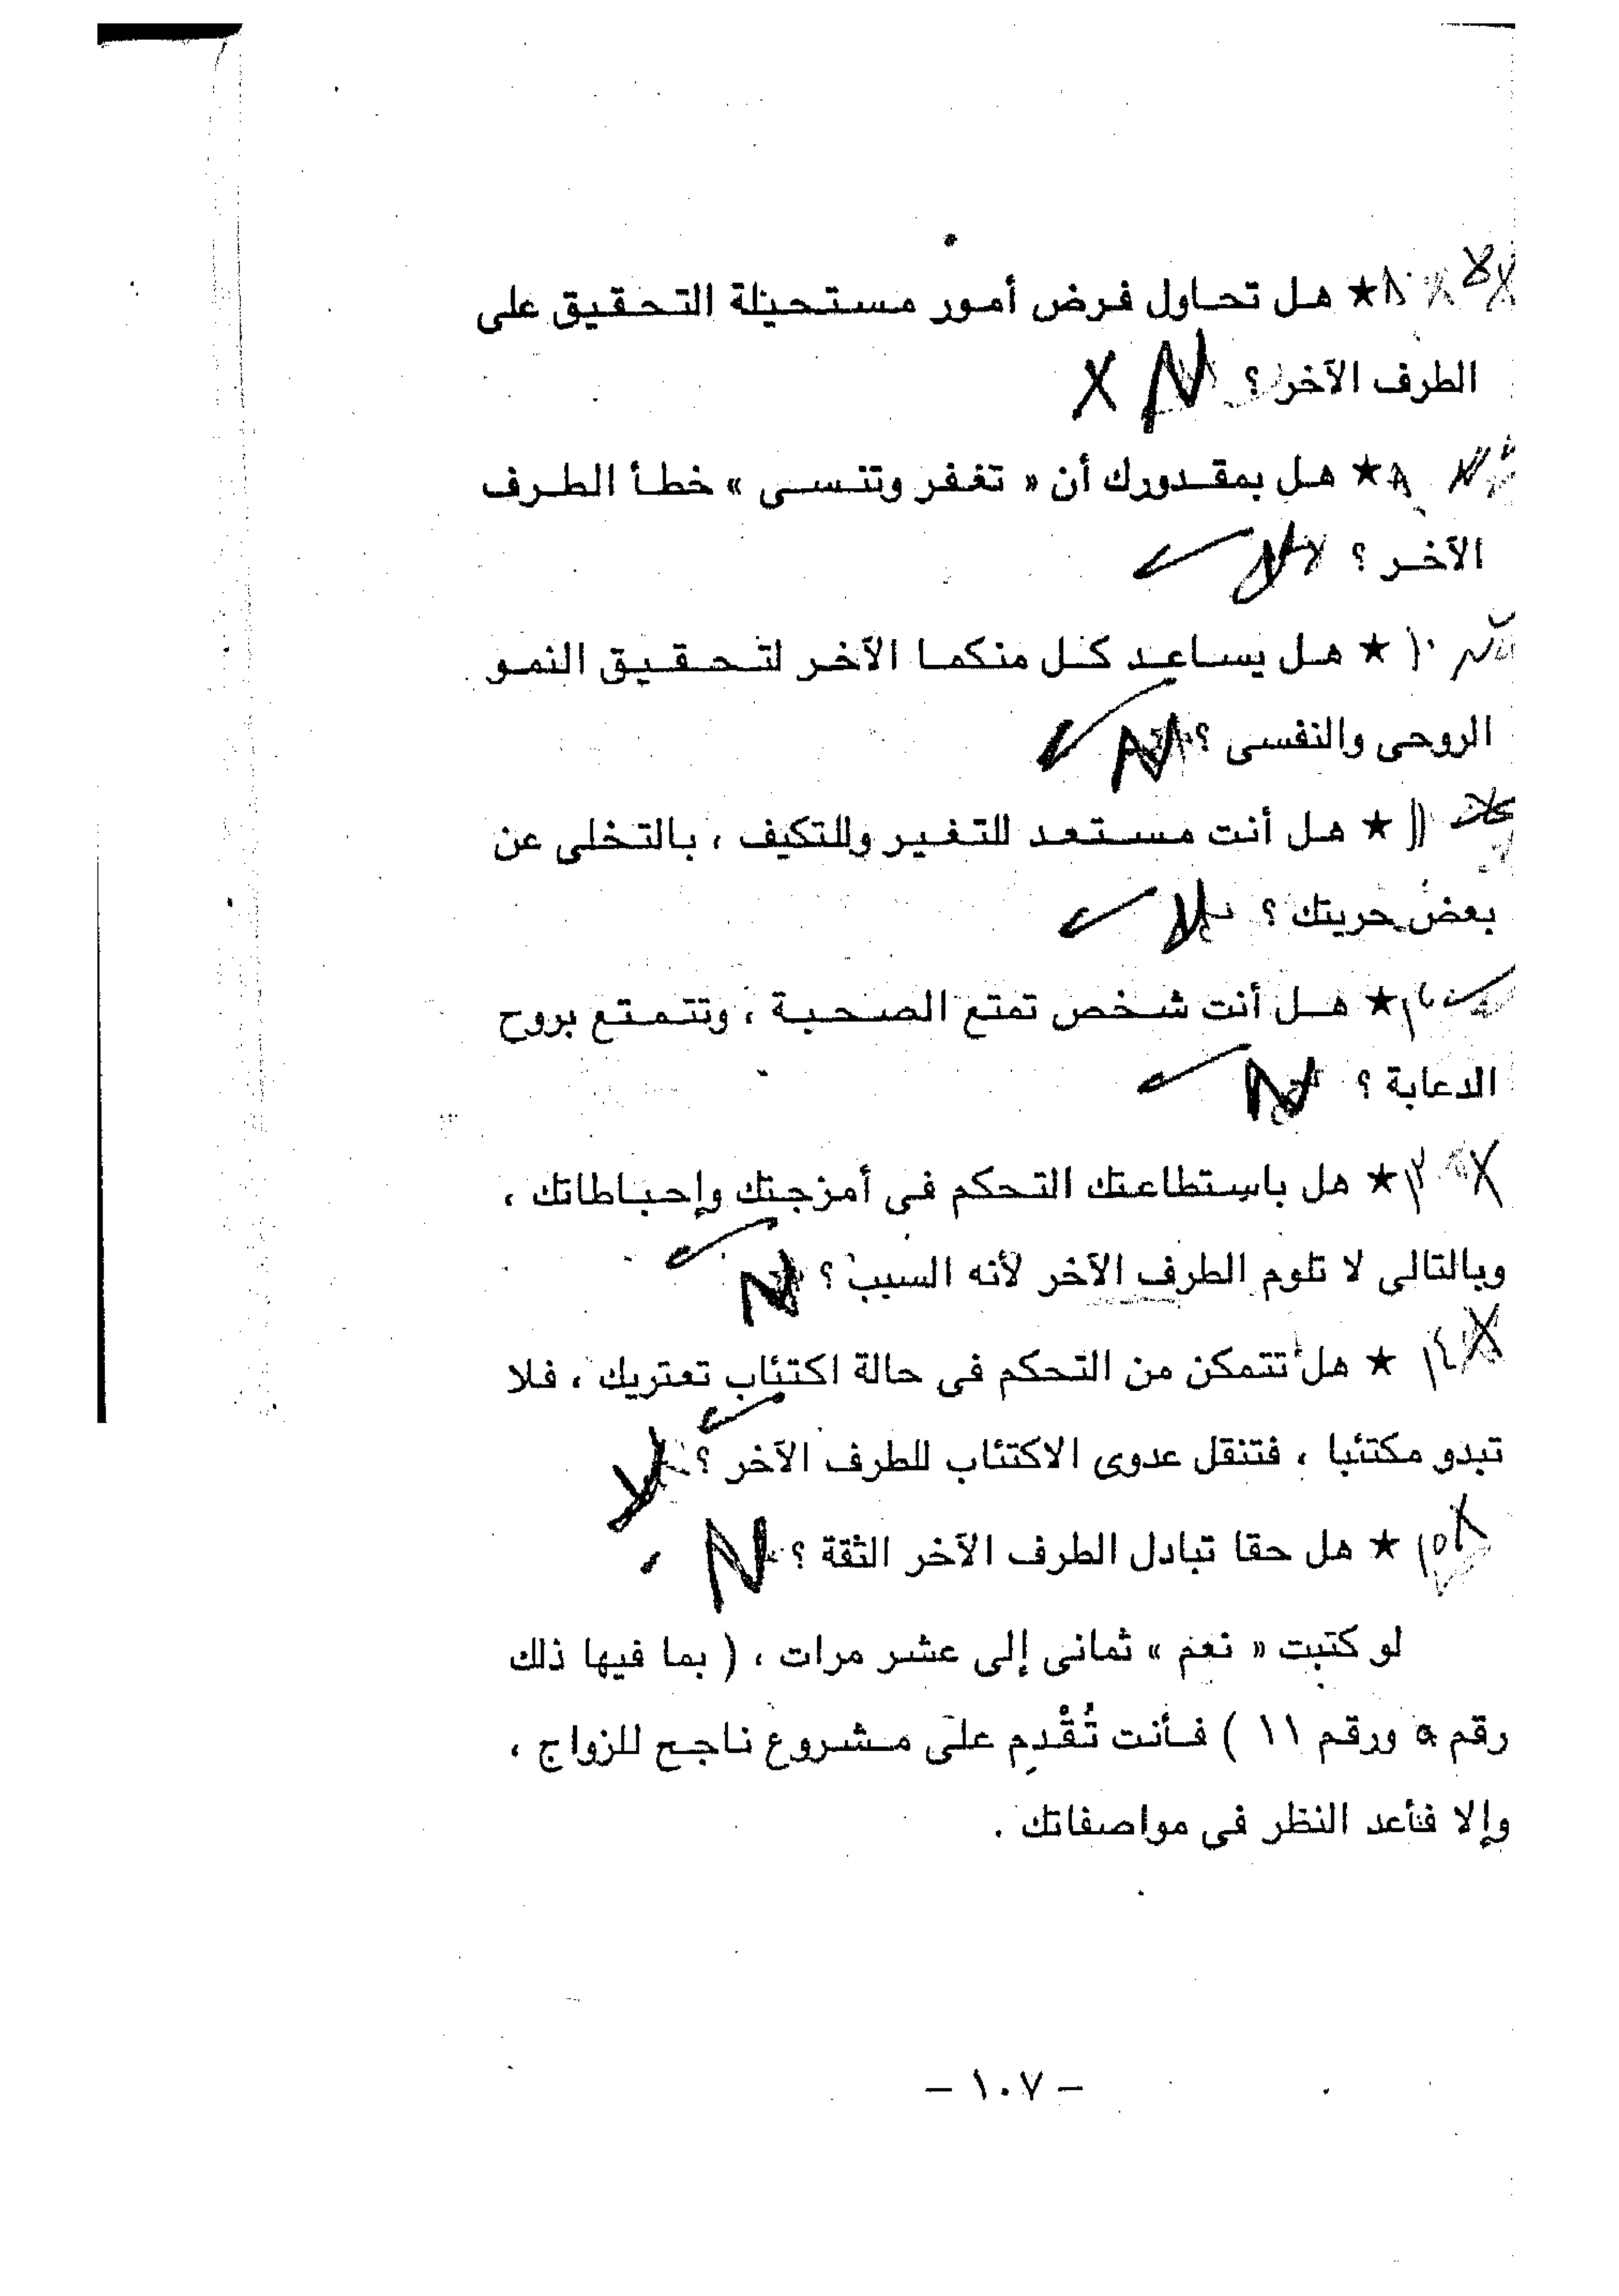 ★ هل تحاول فرض أمور مستحيلة التحقيق على
الطرف الآخر ؟ N X
★ هل بمقدورك أن « تغفر وتنسى » خطأ الطرف
الآخر ؟
١٠ ★ هل يساعد كل منكما الآخر لتحقيق النمو
الروحى والنفسى ؟ N
١١ ★ هل أنت مستعد للتغير وللتكيف ، بالتخلى عن
بعض حريتك ؟
١٢ ★ هل أنت شخص تمتع الصحبة ، وتتمتع بروح
الدعابة ؟ N
١٣ ★ هل باستطاعتك التحكم فى أمزجتك وإحباطاتك ،
وبالتالى لا تلوم الطرف الآخر لأنه السبب ؟ N
X ١٤ ★ هل تتمكن من التحكم فى حالة اكتئاب تعتريك ، فلا
تبدو مكتئبا ، فتنقل عدوى الاكتئاب للطرف الآخر ؟
١٥ ★ هل حقا تبادل الطرف الآخر الثقة ؟ N
لو كتبت « نعم » ثمانى إلى عشر مرات ، ( بما فيها ذلك
رقم ٥ ورقم ١١ ) فأنت تُقْدِم على مشروع ناجح للزواج ،
وإلا فأعد النظر فى مواصفاتك .
– ١٠٧ –